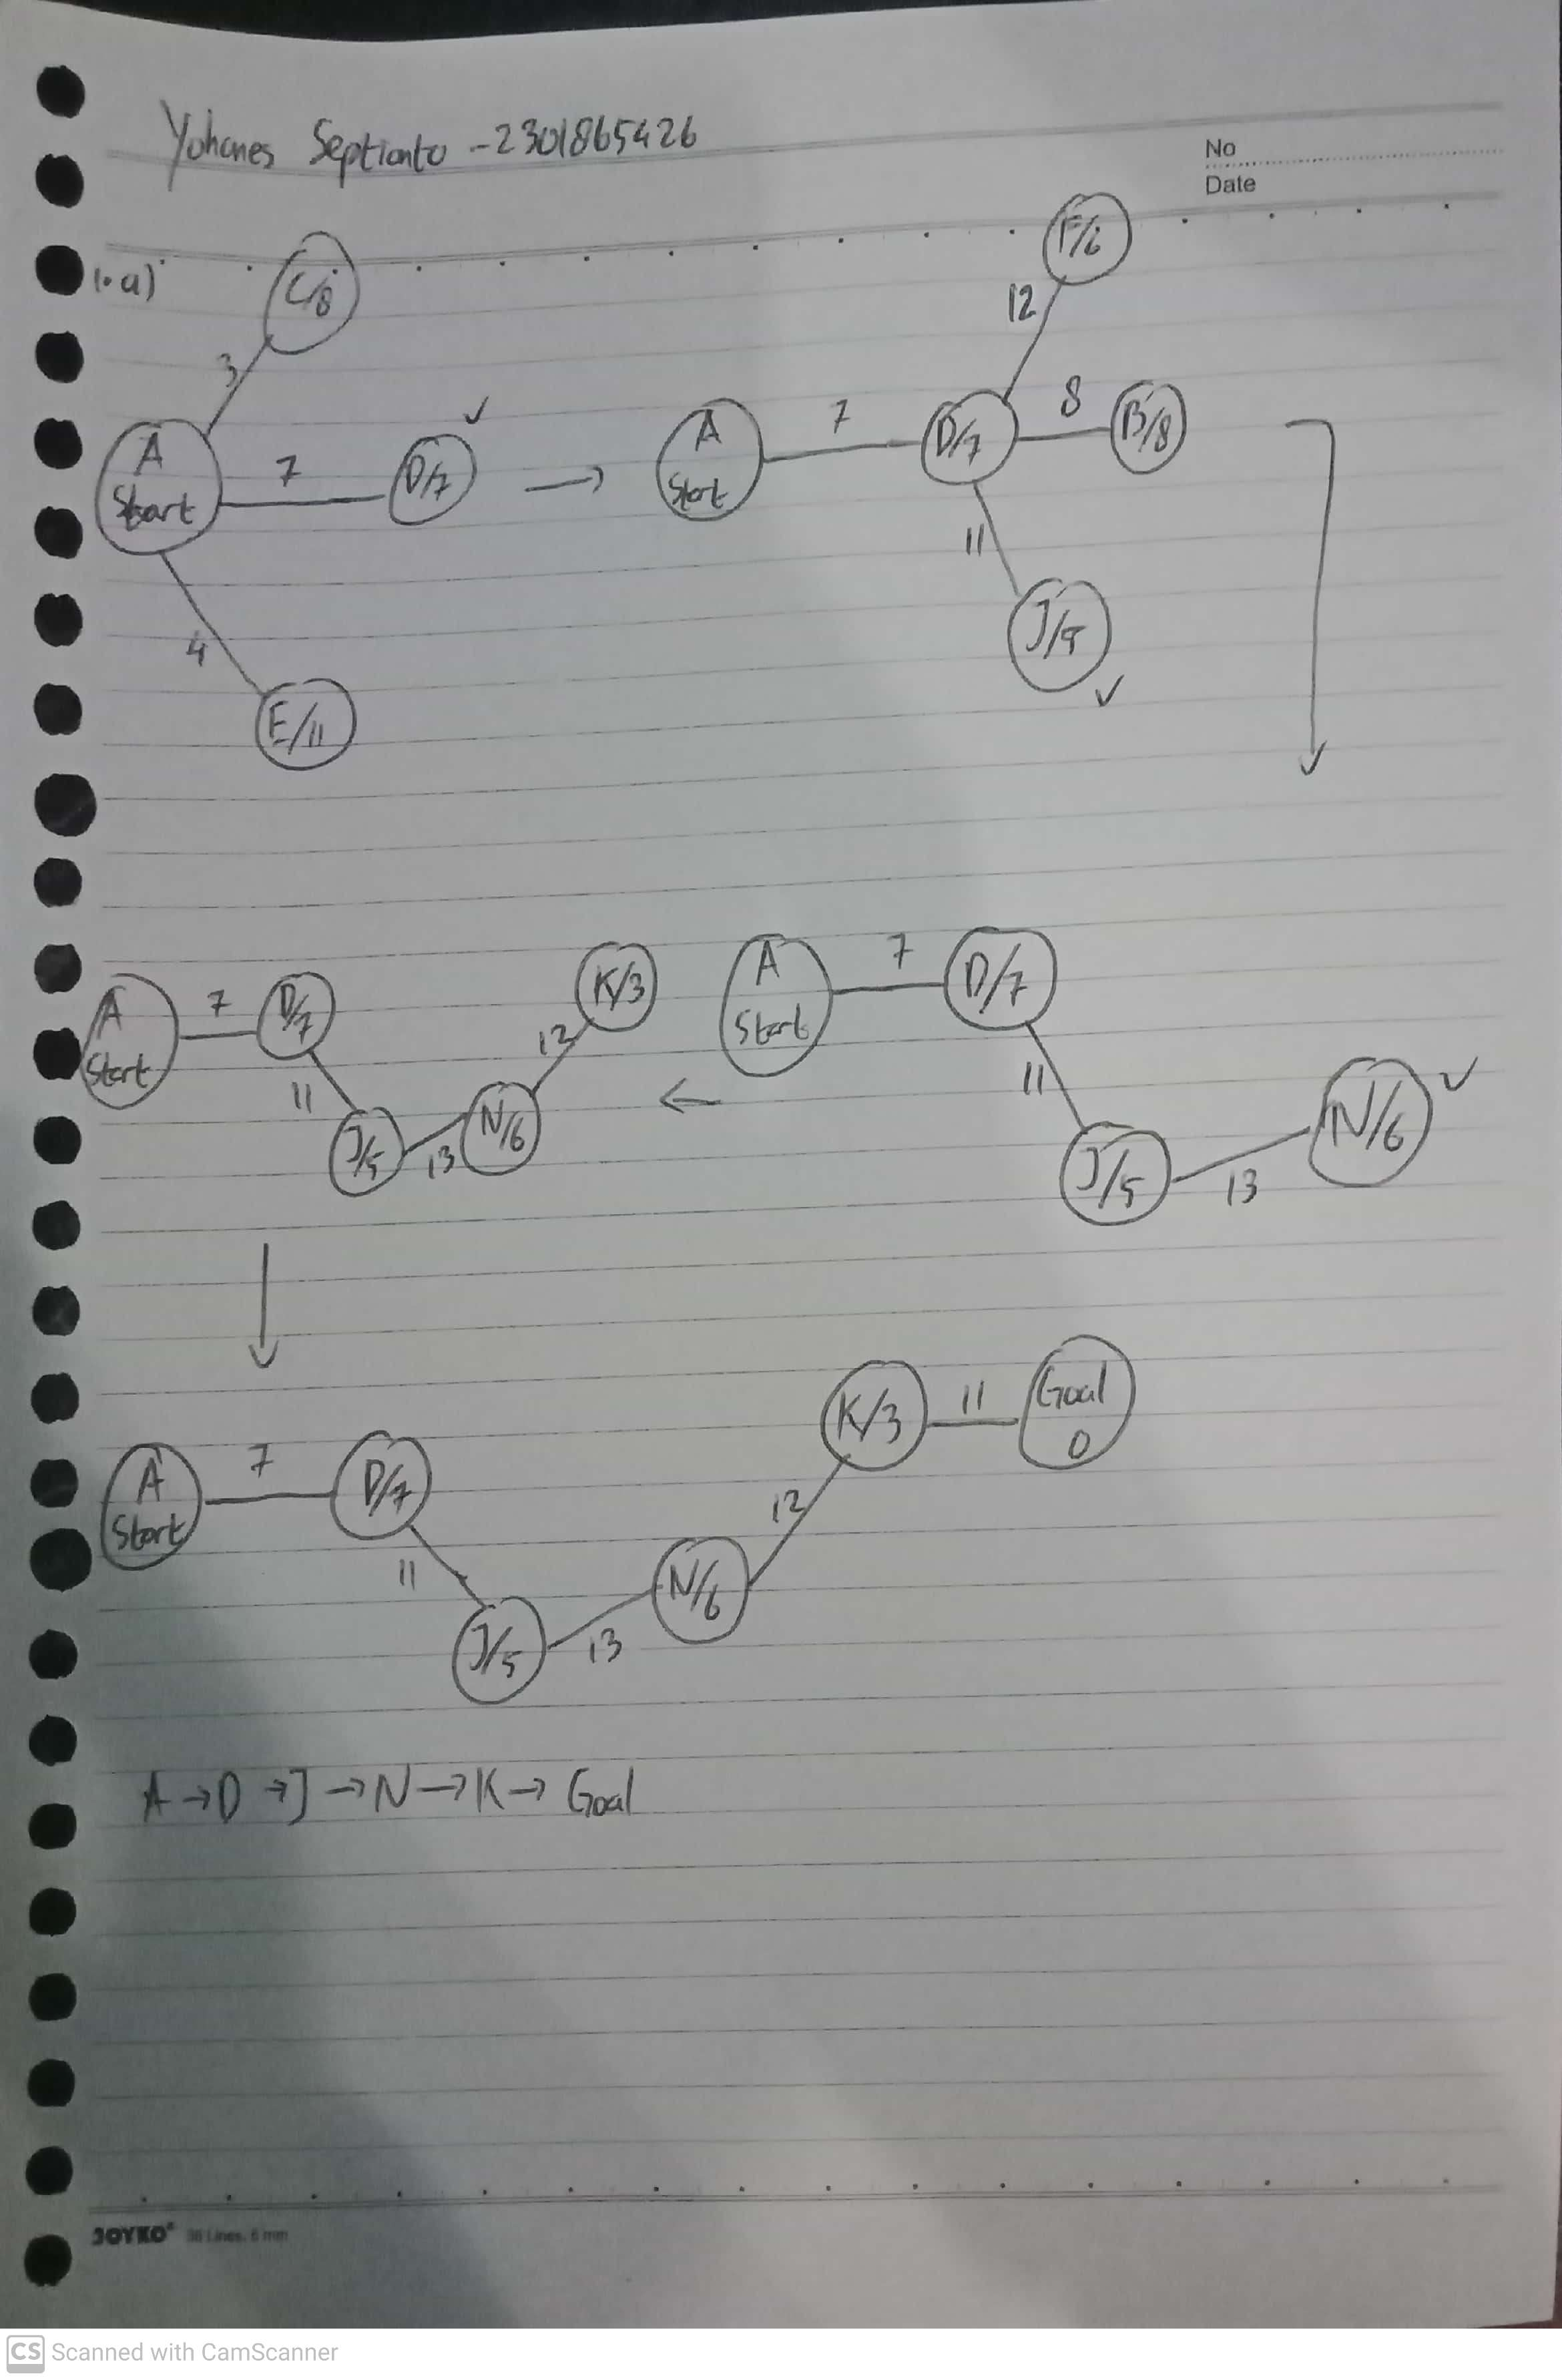 Yohanes Septianto - 2301865426
No
Date
1. a)
C/8
3
A
Start
7
D/7
4
E/11
A
Start
7
D/7
12
F/6
8
B/8
11
J/5
A
Start
7
D/7
11
J/5
13
N/6
A
Start
7
D/7
11
J/5
13
N/6
12
K/3
A
Start
7
D/7
11
J/5
13
N/6
12
K/3
11
Goal
0
A → D → J → N → K → Goal
JOYKO 36 Lines, 6 mm
CS Scanned with CamScanner